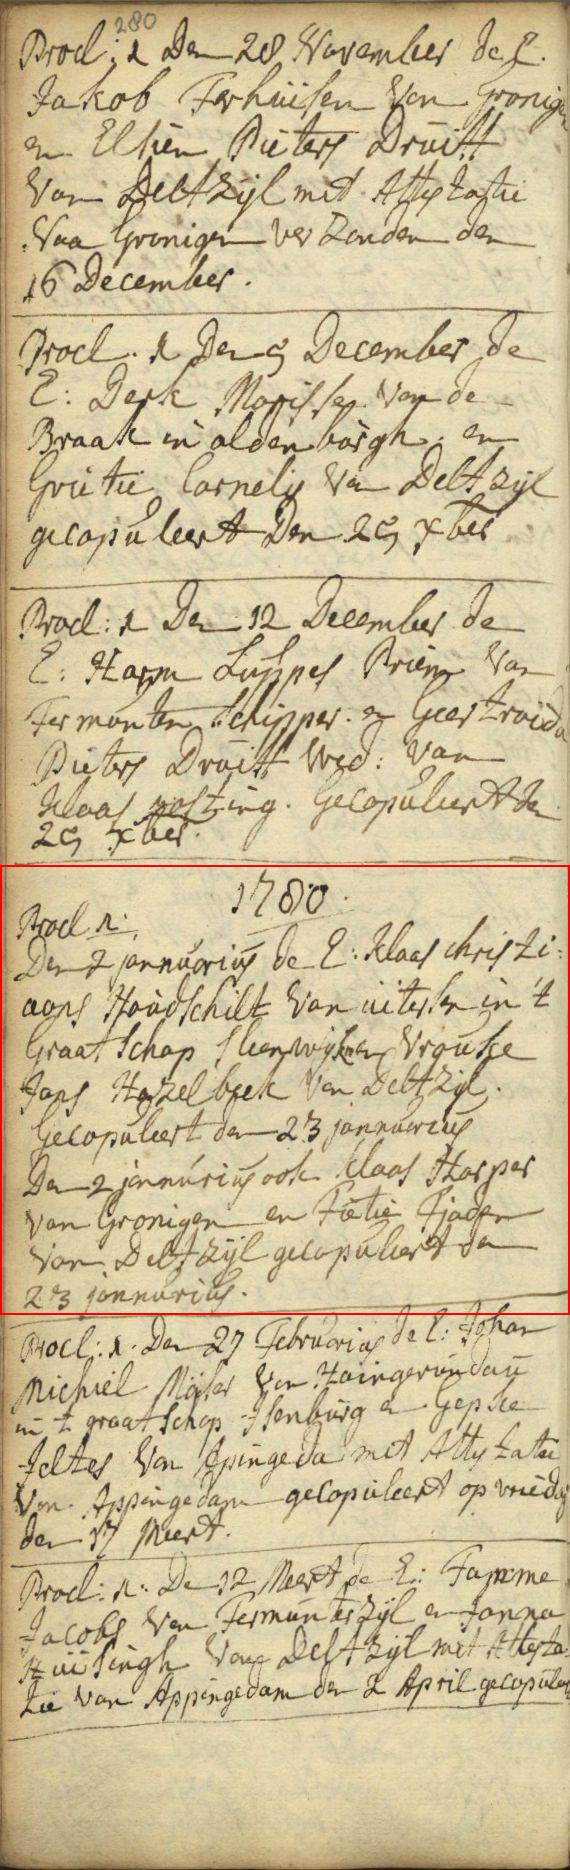 280
Procl: 1 Den 28 November de E.
Jakob Terhuisen Van Gronigen
en Elsien Pieters Druitt
Van Delfzijl met Attestatie
Naa Gronigen verzonden den
16 December.
Procl. 1 Den 5 December de
E: Derk Varisse Van de
Braak in oldenborgh. en
Grietie Cornelis Van Delfzijl
gecopuleert Den 25 xber
Procl: 1 Den 12 December de
E: Harm Luppes Priem Van
Termunten Schipper. en Geertruida
Pieters Druitt Wed: Van
Klaas Gecopuleert den
25 xber.
1780.
Procl 1.
Den 2 jannuarius de E. Klaas christi:
aans Houdschilt Van uitersen in 't
Graafschap en Vrouke
Jans Hazelbeek Van Delfzijl.
Gecopuleert den 23 jannuarius
Den 2 jannurius ook Klaas Harper
van Gronigen en Fietie Tjaden
Van Delfzijl gecopuleert den
23 jannurius.
Procl: 1. Den 27 Februarius de E: Johan
Michiel Van
in t graafschap Isenburg en Gepke
Jeltes Van Apingeda met Attestatie
Von Appingedam gecopuleert op vriedag
den 17 Meert.
Procl: 1. De 12 Meert de E: Tamme
Jacobs Van Termunterzijl en Janna
Huisingh Van Delfzijl met Attesta
tie van Appingedam den 2 April gecopuleert